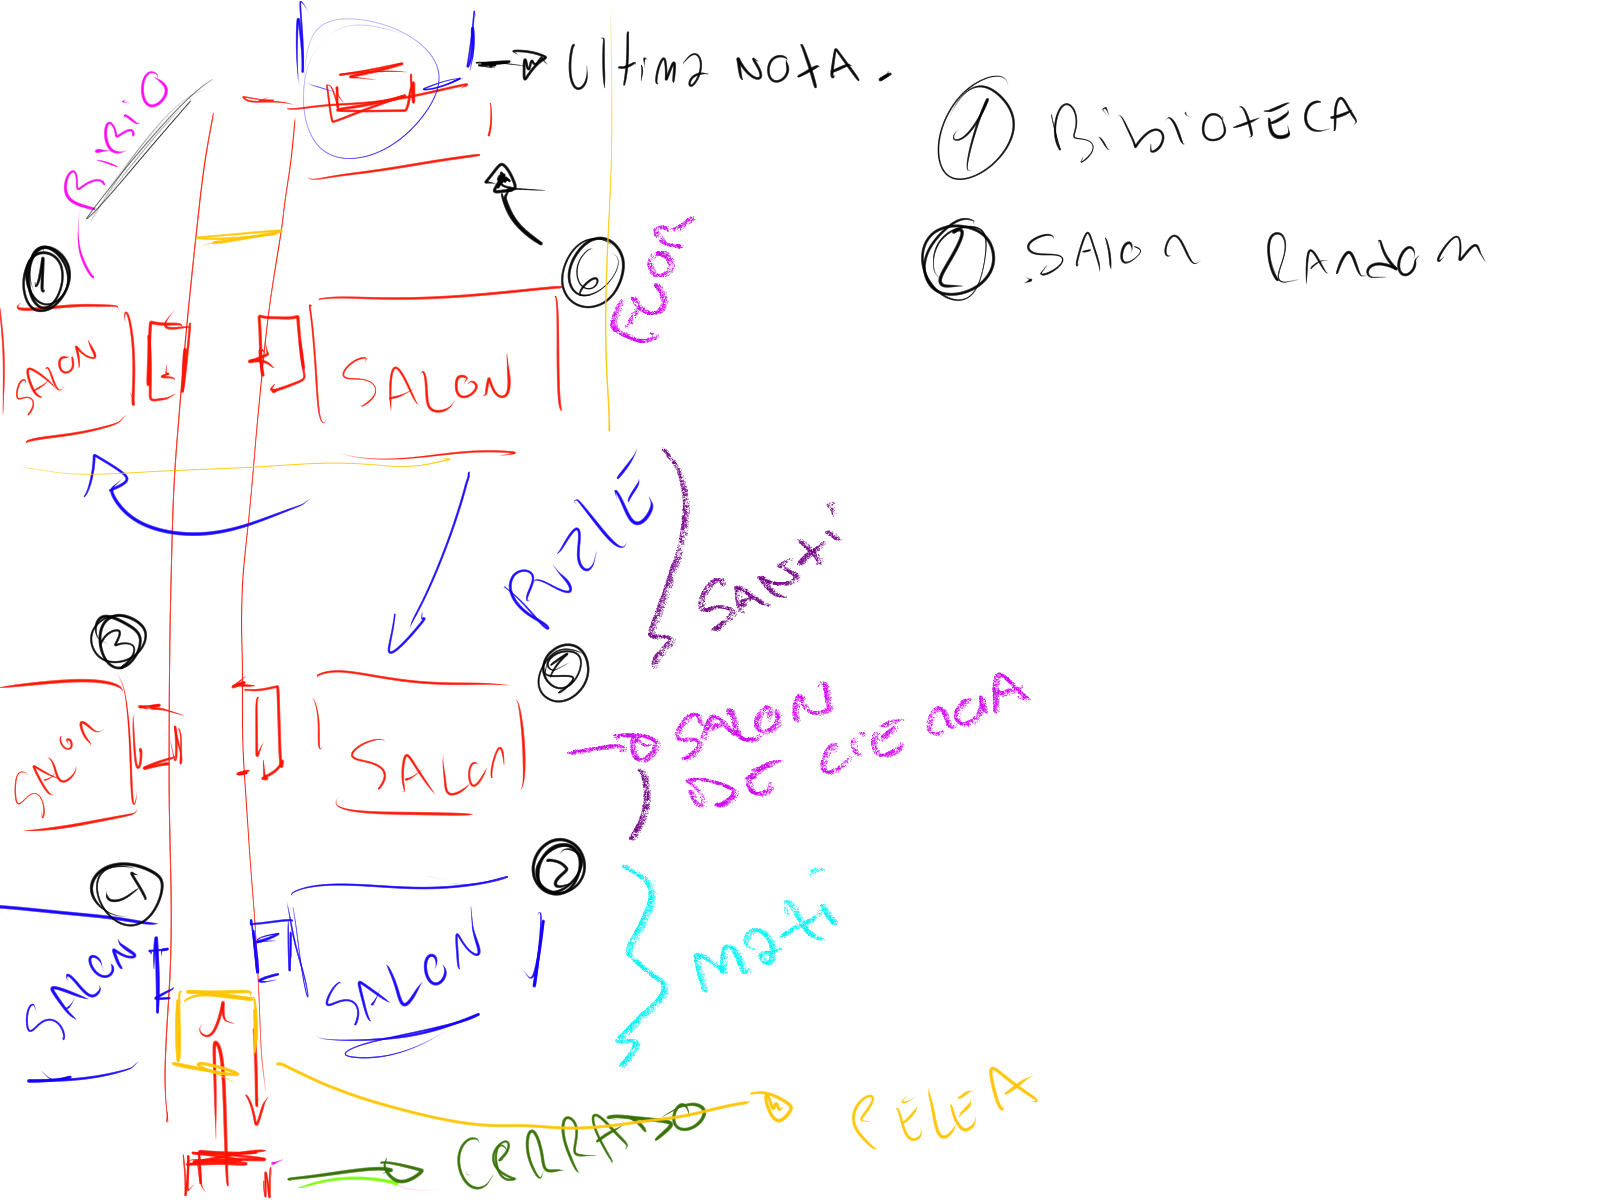 Ultima NOtA.
BIBIO
1 BiblioTECA
2 SAlon RAndom
1
6
FLOR
SAlON
SALON
PUZlE
SANti
3
5
SALON
SALON
SALON
DE CIENCIA
4
2
SALON
SALON
Mati
1
PELEA
CERRADO